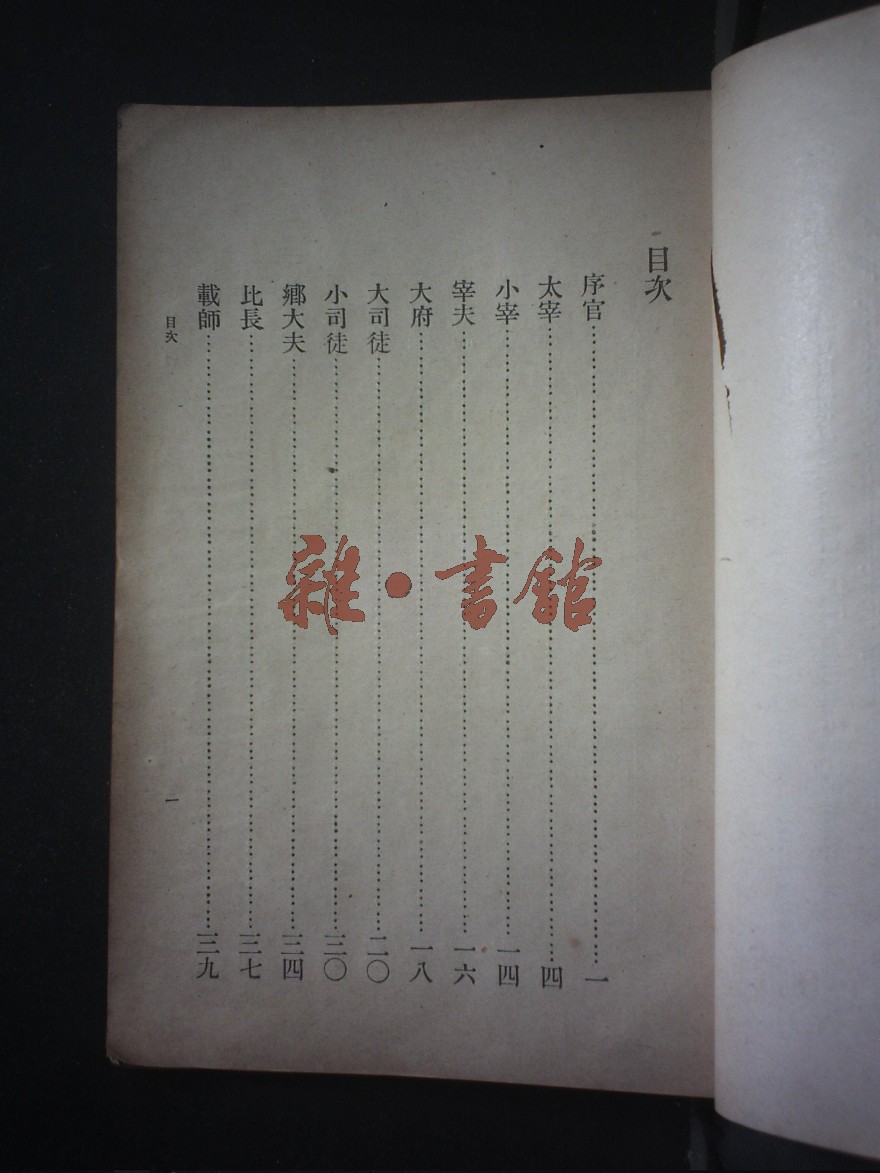 目次
序官⋯⋯⋯⋯⋯⋯一
太宰⋯⋯⋯⋯⋯⋯四
小宰⋯⋯⋯⋯⋯⋯一四
宰夫⋯⋯⋯⋯⋯⋯一六
大府⋯⋯⋯⋯⋯⋯一八
大司徒⋯⋯⋯⋯⋯⋯二〇
小司徒⋯⋯⋯⋯⋯⋯三〇
鄉大夫⋯⋯⋯⋯⋯⋯三四
比長⋯⋯⋯⋯⋯⋯三七
載師⋯⋯⋯⋯⋯⋯三九
目次 一
雜·書館